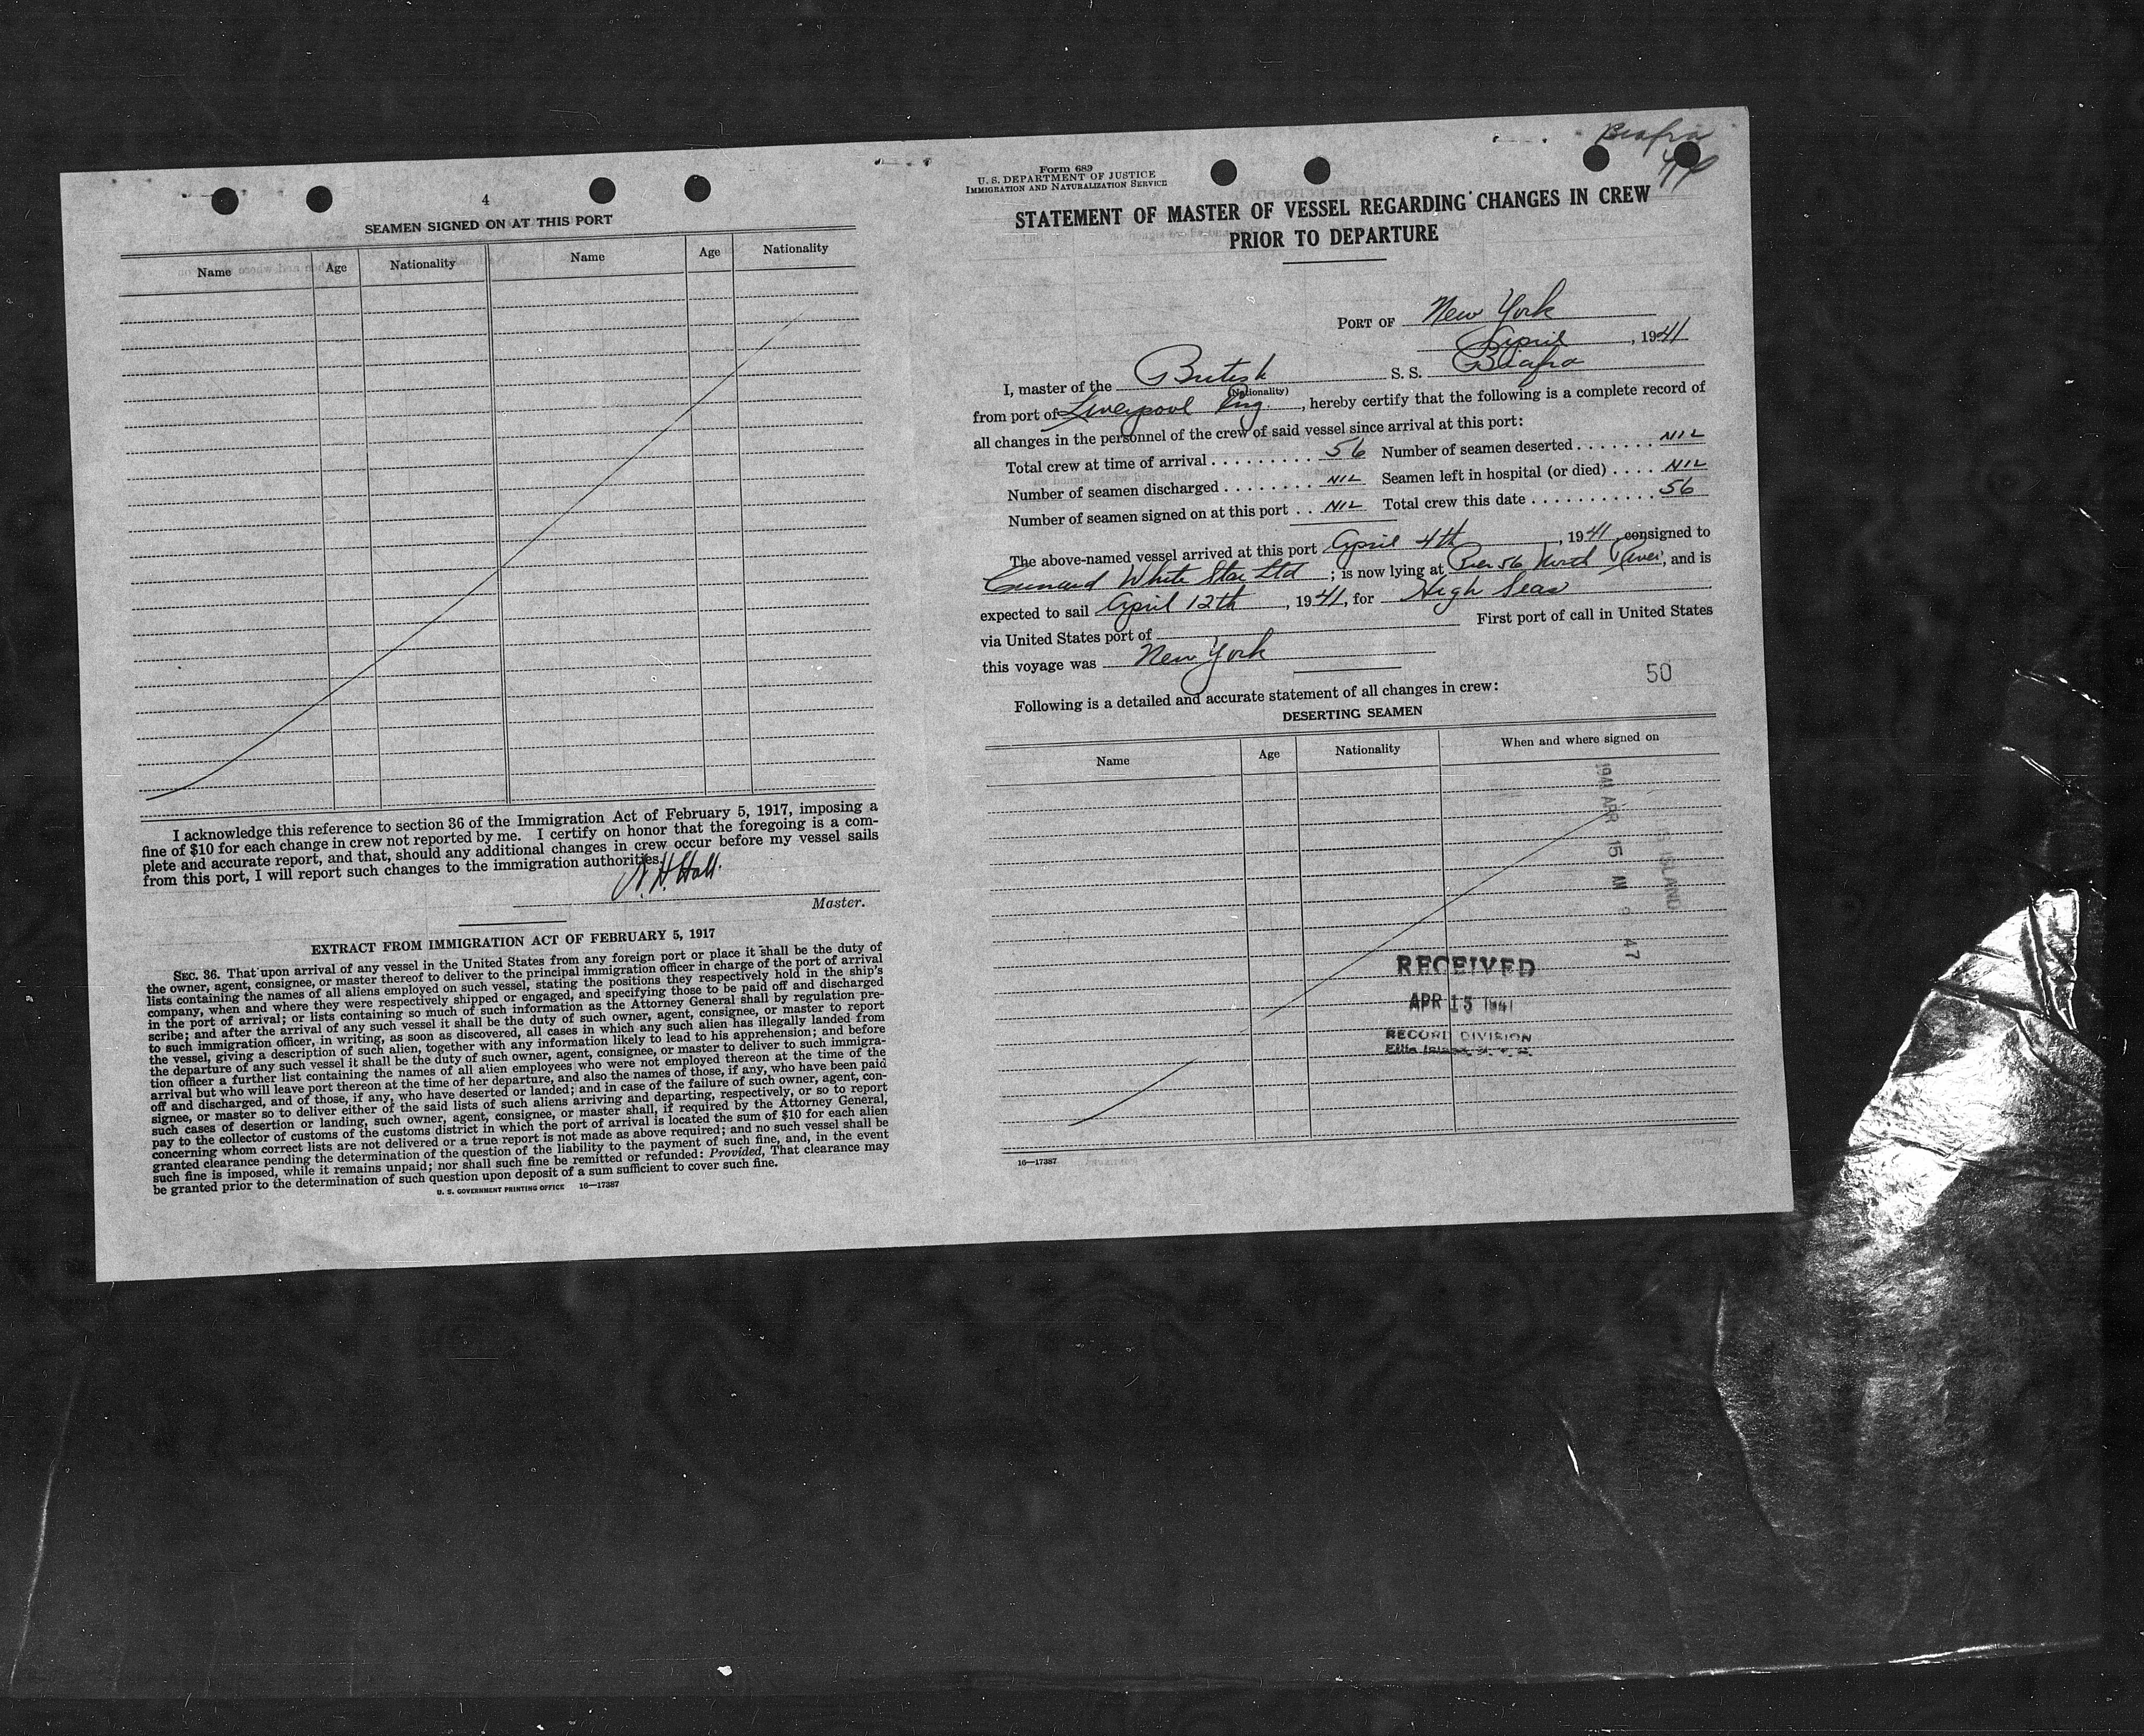 4
SEAMEN SIGNED ON AT THIS PORT
Name Age Nationality Name Age Nationality
I acknowledge this reference to section 36 of the Immigration Act of February 5, 1917, imposing a
fine of $10 for each change in crew not reported by me. I certify on honor that the foregoing is a com-
plete and accurate report, and that, should any additional changes in crew occur before my vessel sails
from this port, I will report such changes to the immigration authorities.
H. Hall.
Master.
EXTRACT FROM IMMIGRATION ACT OF FEBRUARY 5, 1917
SEC. 36. That upon arrival of any vessel in the United States from any foreign port or place it shall be the duty of
the owner, agent, consignee, or master thereof to deliver to the principal immigration officer in charge of the port of arrival
lists containing the names of all aliens employed on such vessel, stating the positions they respectively hold in the ship's
company, when and where they were respectively shipped or engaged, and specifying those to be paid off and discharged
in the port of arrival; or lists containing so much of such information as the Attorney General shall by regulation pre-
scribe; and after the arrival of any such vessel it shall be the duty of such owner, agent, consignee, or master to report
to such immigration officer, in writing, as soon as discovered, all cases in which any such alien has illegally landed from
the vessel, giving a description of such alien, together with any information likely to lead to his apprehension; and before
the departure of any such vessel it shall be the duty of such owner, agent, consignee, or master to deliver to such immigra-
tion officer a further list containing the names of all alien employees who were not employed thereon at the time of the
arrival but who will leave port thereon at the time of her departure, and also the names of those, if any, who have been paid
off and discharged, and of those, if any, who have deserted or landed; and in case of the failure of such owner, agent, con-
signee, or master so to deliver either of the said lists of such aliens arriving and departing, respectively, or so to report
such cases of desertion or landing, such owner, agent, consignee, or master shall, if required by the Attorney General,
pay to the collector of customs of the customs district in which the port of arrival is located the sum of $10 for each alien
concerning whom correct lists are not delivered or a true report is not made as above required; and no such vessel shall be
granted clearance pending the determination of the question of the liability to the payment of such fine, and, in the event
such fine is imposed, while it remains unpaid; nor shall such fine be remitted or refunded: Provided, That clearance may
be granted prior to the determination of such question upon deposit of a sum sufficient to cover such fine.
U. S. GOVERNMENT PRINTING OFFICE 16—17387
Biafra
Form 689
U. S. DEPARTMENT OF JUSTICE
IMMIGRATION AND NATURALIZATION SERVICE
STATEMENT OF MASTER OF VESSEL REGARDING CHANGES IN CREW
PRIOR TO DEPARTURE
PORT OF New York
April, 1941
I, master of the British S. S. Biafra
(Nationality)
from port of Liverpool Eng, hereby certify that the following is a complete record of
all changes in the personnel of the crew of said vessel since arrival at this port:
Total crew at time of arrival . . . . . . . . . 56 Number of seamen deserted . . . . . . . NIL
Number of seamen discharged . . . . . . . . NIL Seamen left in hospital (or died) . . . . NIL
Number of seamen signed on at this port . . NIL Total crew this date . . . . . . . . . . . . 56
The above-named vessel arrived at this port April 4th, 1941, consigned to
Cunard White Star Ltd; is now lying at Pier 56 North River, and is
expected to sail April 12th, 1941, for High Seas
via United States port of First port of call in United States
this voyage was New York
50
Following is a detailed and accurate statement of all changes in crew:
DESERTING SEAMEN
Name Age Nationality When and where signed on
1941 APR 15 AM 9 47
ISLAND
RECEIVED
APR 15 1941
RECORD DIVISION
Ellis Island, N. Y. H.
16—17387